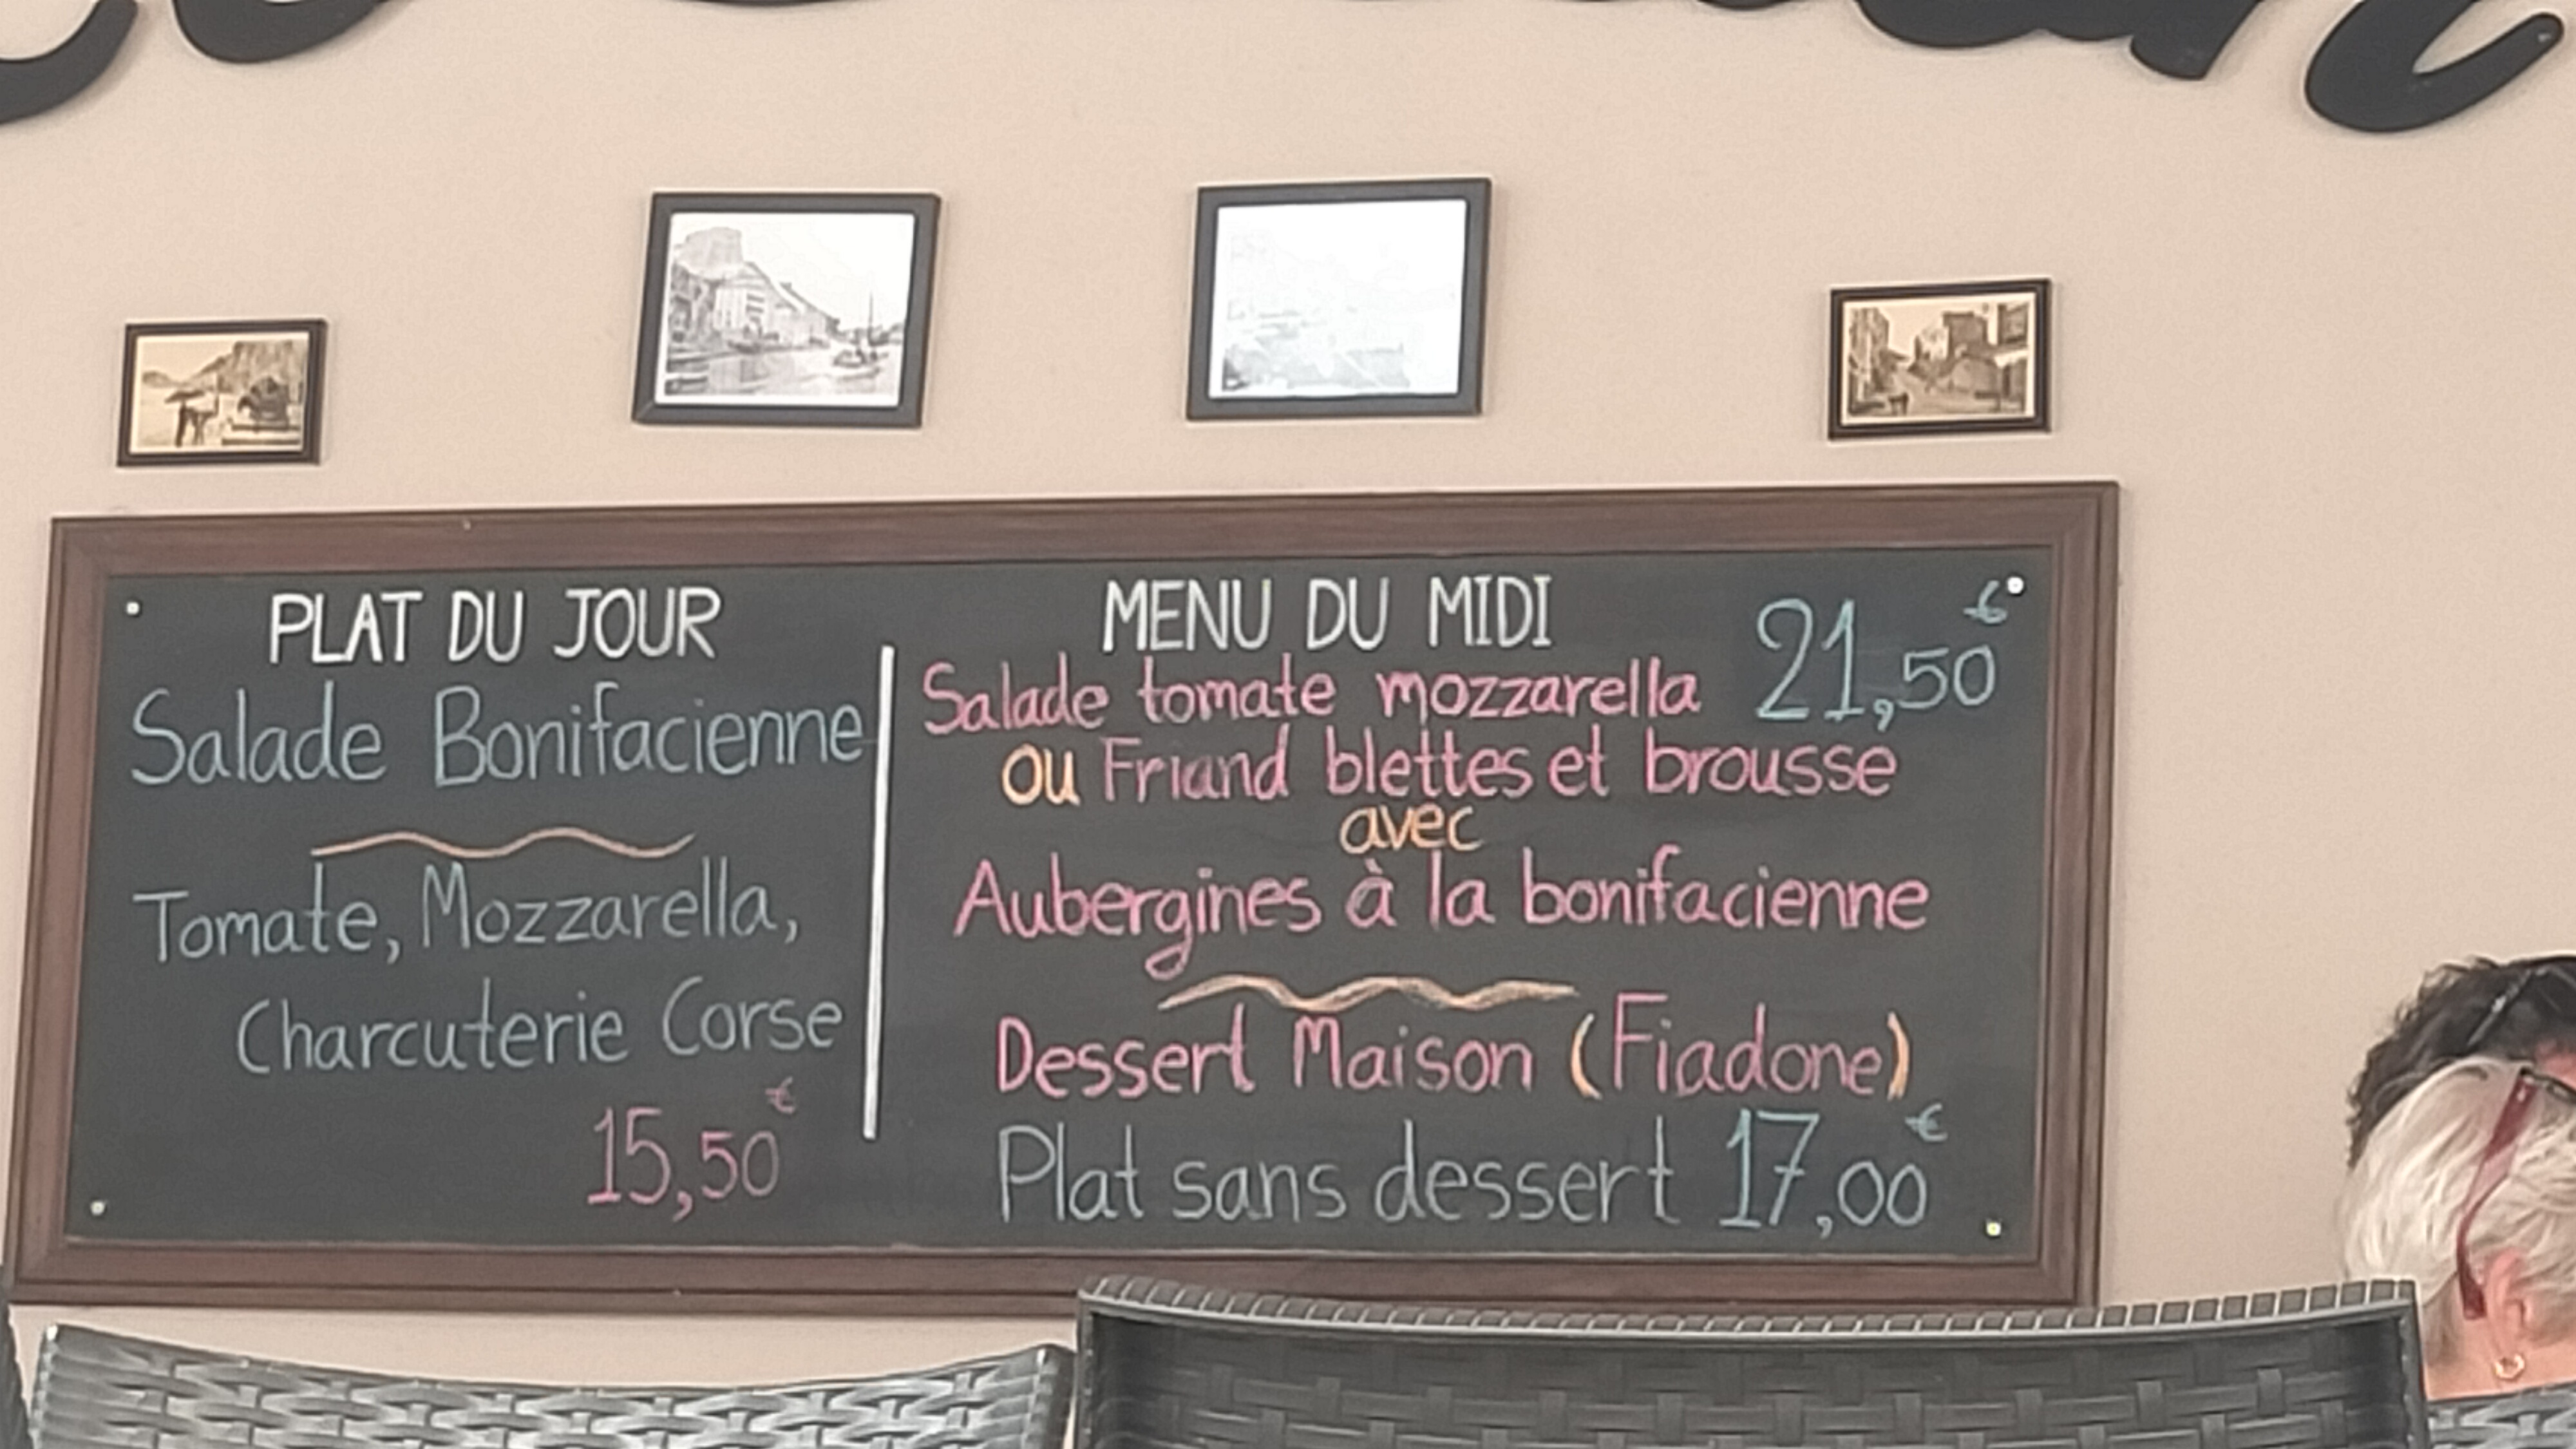 PLAT DU JOUR
Salade Bonifacienne
Tomate, Mozzarella,
Charcuterie Corse
15,50€
MENU DU MIDI 21,50€
Salade tomate mozzarella
ou Friand blettes et brousse
avec
Aubergines à la bonifacienne
Dessert Maison (Fiadone)
Plat sans dessert 17,00€